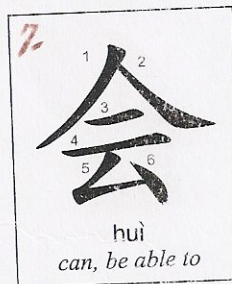 7.
1 2
会
3
4
5 6
huì
can, be able to